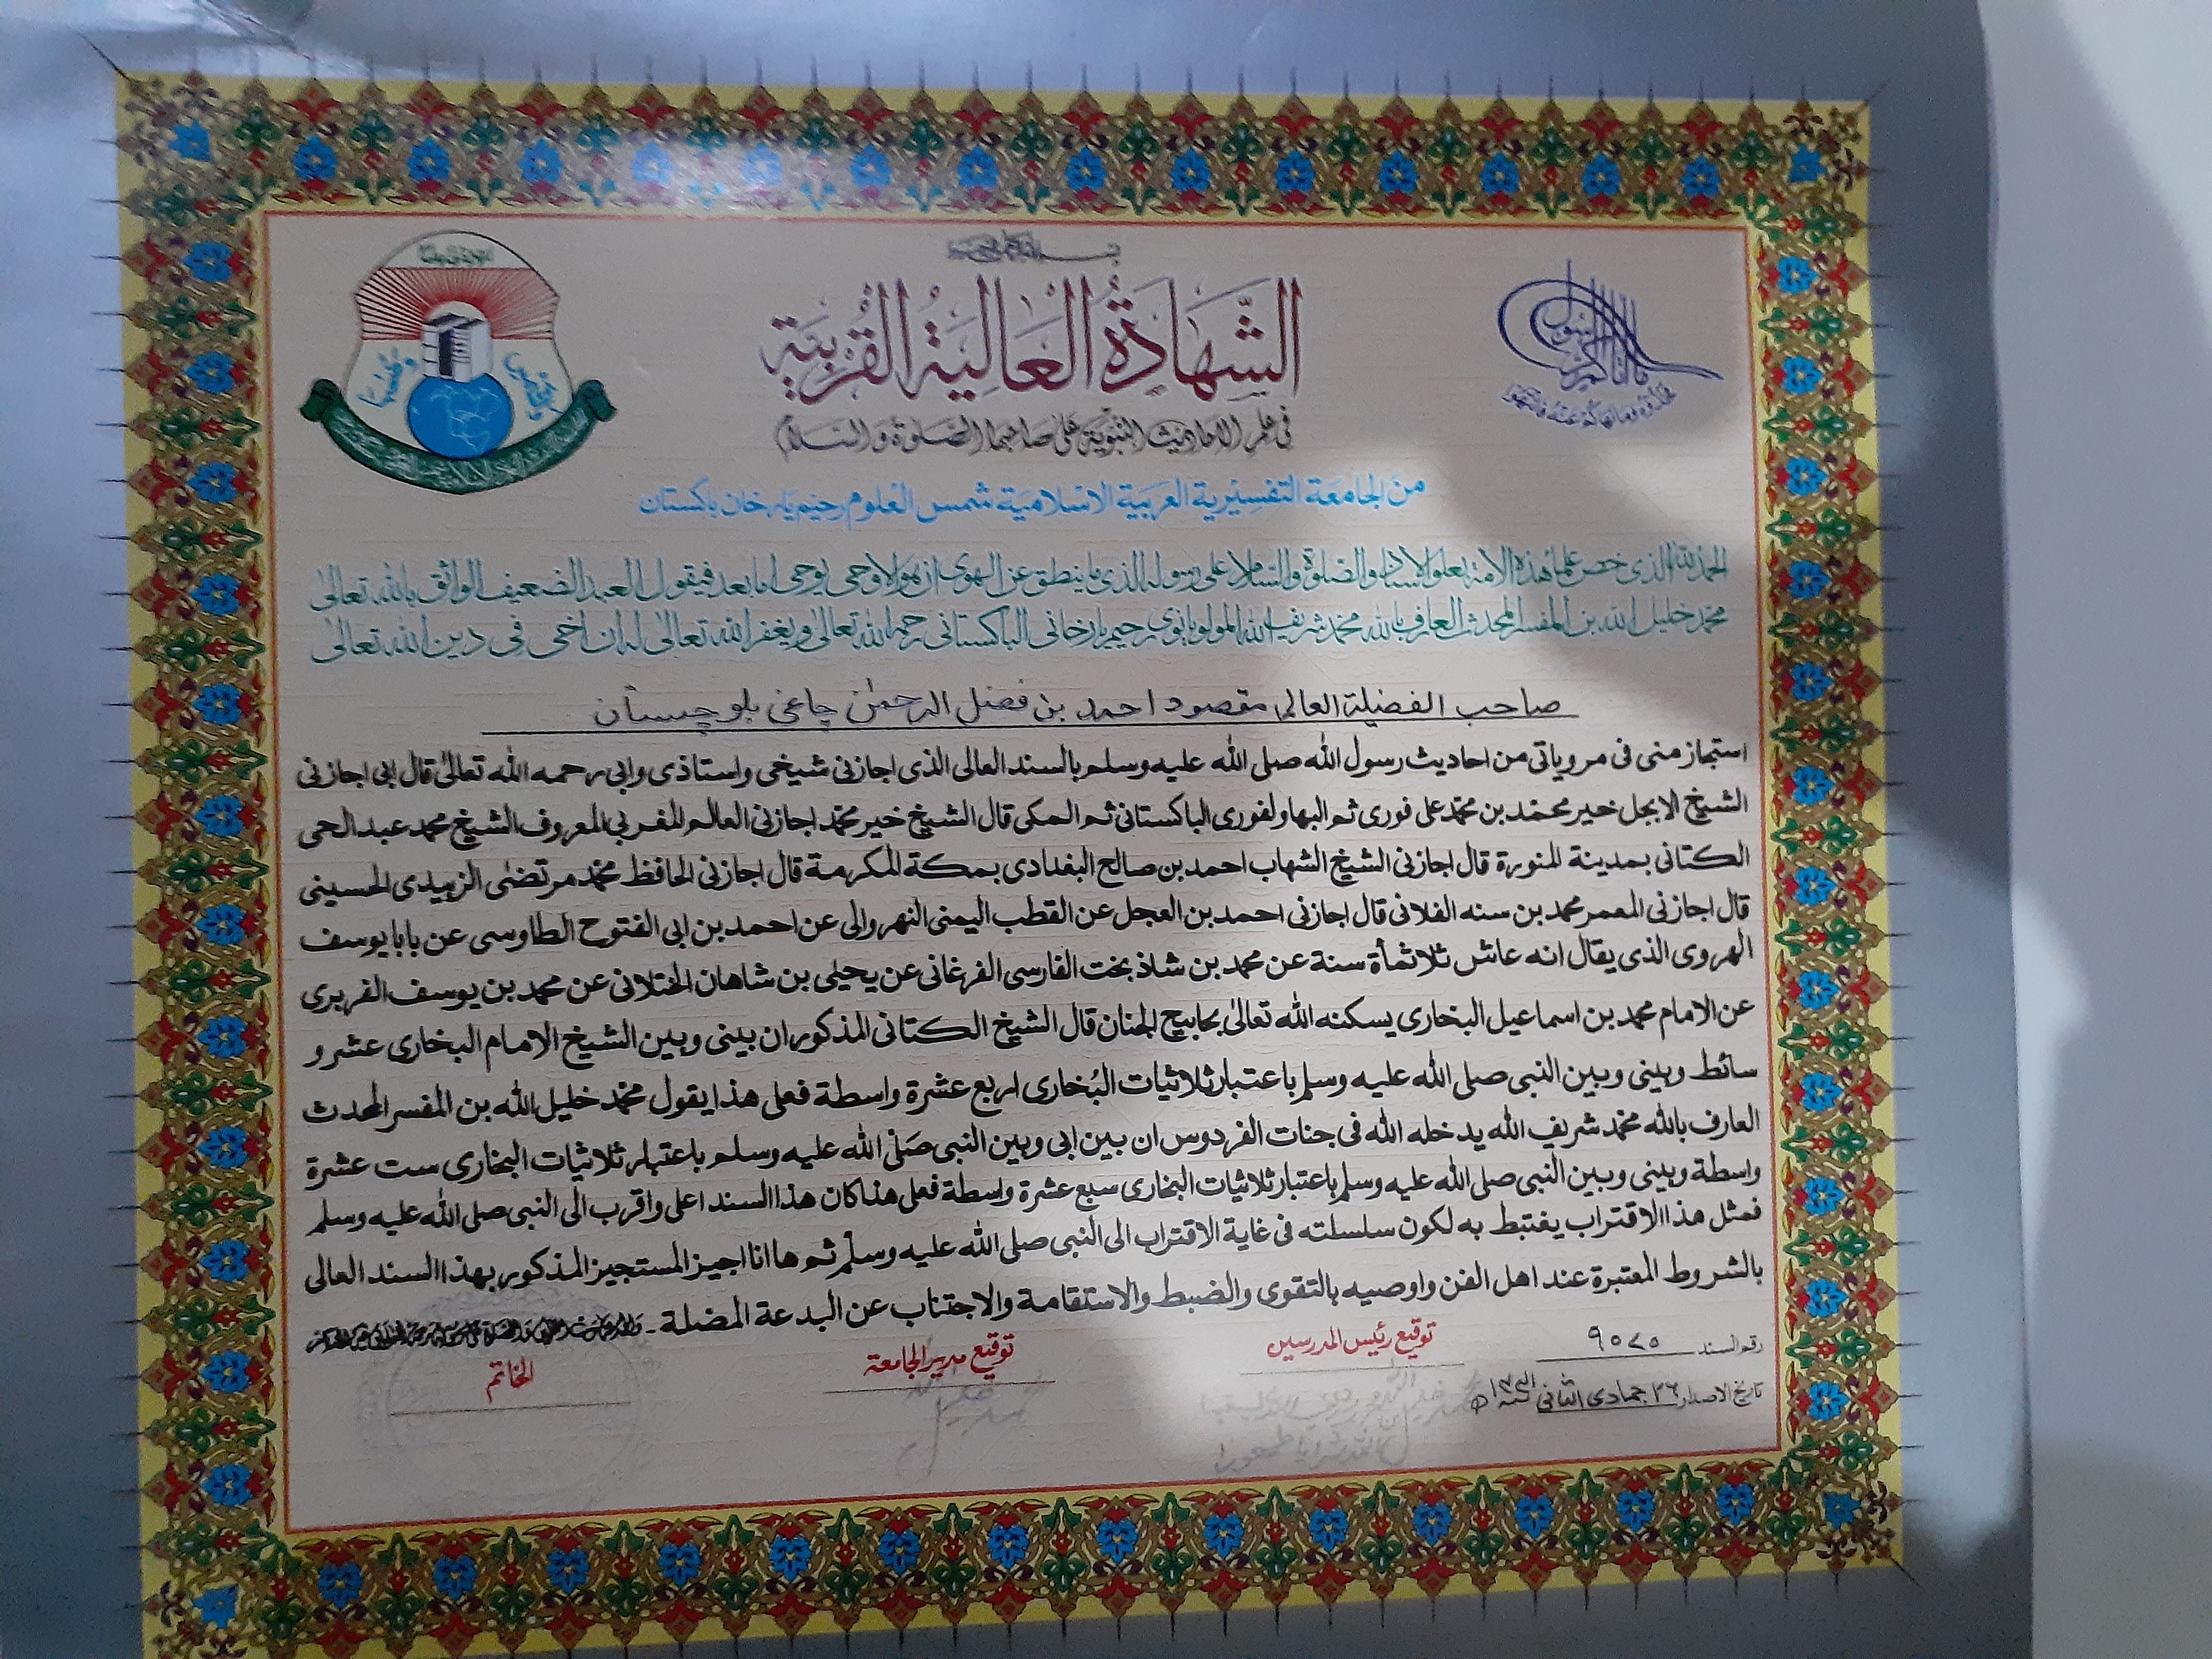 الشَّهَادَةُ الْعَالِيَةُ الْقُرْبِيَة
في علم الاحاديث النبوية على صاحبها الصلوة والسلام
من الجامعة التفسيرية العربية الاسلامية شمس العلوم رحيم يار خان باكستان
الحمد لله الذى خص علماء هذه الامة بعلو الاسناد والصلوة والسلام على رسوله الذى ما ينطق عن الهوى ان هو الا وحى يوحى اما بعد فيقول العبد الضعيف الواثق بالله تعالىٰ
محمد خليل الله بن المفسر المحدث العارف بالله محمد شريف الله المولويانوى رحيم يارخانى الباكستانى رحمه الله تعالىٰ ويغفر الله تعالىٰ له ان اخى فى دين الله تعالىٰ
صاحب الفضيلة العالم مقصود احمد بن فضل الرحمٰن چاغى بلوچستان
استجاز منى فى مروياتى من احاديث رسول الله صلى الله عليه وسلم بالسند العالى الذى اجازنى شيخى واستاذى وابى رحمه الله تعالىٰ قال ابى اجازنى
الشيخ الابجل خير محمد بن محمد على فورى ثم البهاولفورى الباكستانى ثم المكى قال الشيخ خير محمد اجازنى العالم المغربى المعروف الشيخ محمد عبد الحى
الكتانى بمدينة المنورة قال اجازنى الشيخ الشهاب احمد بن صالح البغدادى بمكة المكرمة قال اجازنى الحافظ محمد مرتضىٰ الزبيدى الحسينى
قال اجازنى المعمر محمد بن سنه الفلانى قال اجازنى احمد بن العجل عن القطب اليمنى النهروالى عن احمد بن ابى الفتوح الطاوسى عن بابا يوسف
الهروى الذى يقال انه عاش ثلاثمأة سنة عن محمد بن شاذ بخت الفارسى الفرغانى عن يحيىٰ بن شاهان الختلانى عن محمد بن يوسف الفربرى
عن الامام محمد بن اسماعيل البخارى يسكنه الله تعالىٰ بحابيح الجنان قال الشيخ الكتانى المذكور ان بينى وبين الشيخ الامام البخارى عشر و
سائط وبينى وبين النبى صلى الله عليه وسلم باعتبار ثلاثيات البُخارى اربع عشرة واسطة فعلى هذا يقول محمد خليل الله بن المفسر المحدث
العارف بالله محمد شريف الله يدخله الله فى جنات الفردوس ان بين ابى وبين النبى صَلى الله عليه وسلم باعتبار ثلاثيات البخارى ست عشرة
واسطة وبينى وبين النبى صلى الله عليه وسلم باعتبار ثلاثيات البخارى سبع عشرة واسطة فعلى هذا كان هذا السند اعلى واقرب الى النبى صلى الله عليه وسلم
فمثل هذا الاقتراب يغتبط به لكون سلسلته فى غاية الاقتراب الى النبى صلى الله عليه وسلم ثم ها انا اجيز المستجيز المذكور بهذا السند العالى
بالشروط المعتبرة عند اهل الفن واوصيه بالتقوى والضبط والاستقامة والاجتناب عن البدعة المضلة ۔
رقم السند ٩٥٧٥
توقيع رئيس المدرسين
توقيع مدير الجامعة
الخاتم
تاريخ الاصدار ٢٦ جمادى الثانى